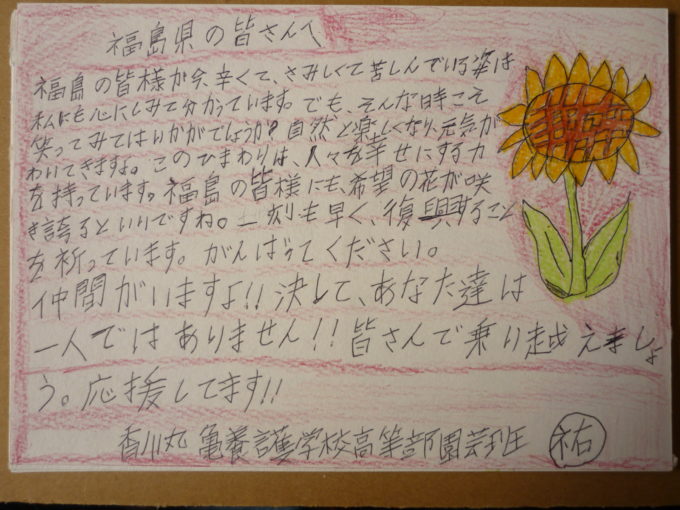 福島県の皆さんへ
福島の皆様が今、辛くて、さみしくて苦しんでいる姿は
私にも心にしみて分かっています。でも、そんな時こそ
笑ってみてはいかがでしょうか？自然と楽しくなり、元気が
わいてきますよ。このひまわりは、人々を幸せにする力
を持っています。福島の皆様にも、希望の花が咲
き誇るといいですね。一刻も早く、復興すること
を祈っています。がんばってください。
仲間がいますよ!!決して、あなた達は
一人ではありません!!皆さんで乗り越えましょ
う。応援してます!!
香川丸亀養護学校高等部園芸班 祐